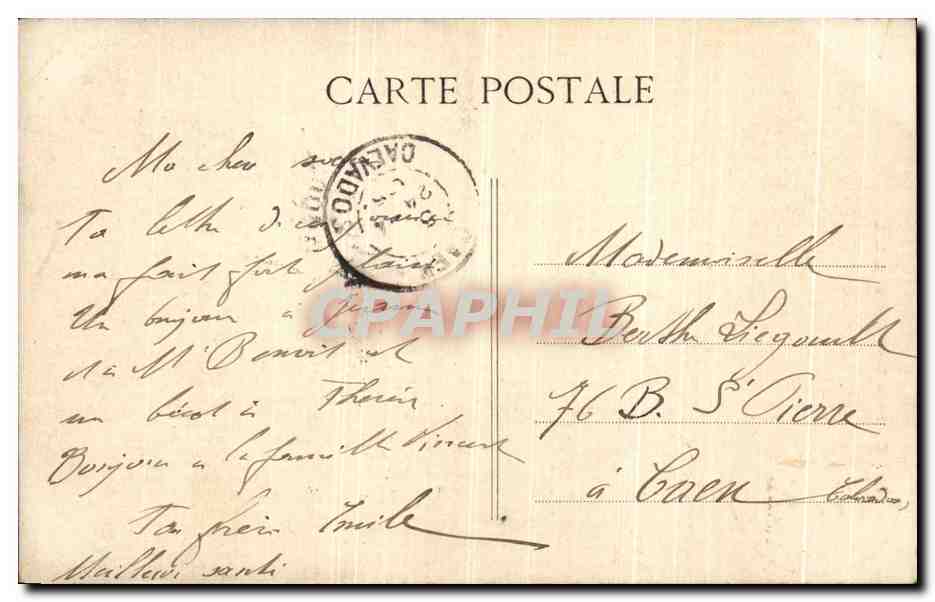 CARTE POSTALE
Ma chere soeur
Ta lettre
ma fait forte plaisir
Un bonjour à Jeanne
et à Mr Benoit et
un bécot à Therèse
Bonjour a la famille Vincent
Ton frère Emile
Meilleure santé
CALVADOS
CAEN
Mademoiselle
Berthe Liégault
76 B. St Pierre
à Caen Calvados
CPAPHIL